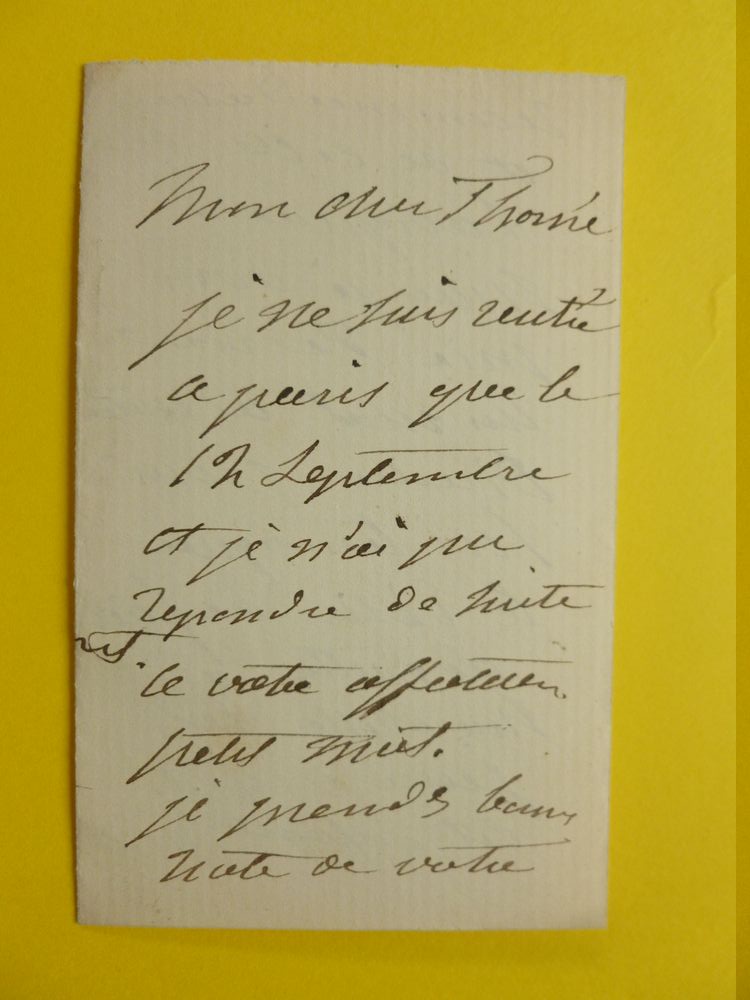 Mon cher Thomé
je ne suis rentré
a paris que le
12 Septembre
et je n'ai pu
repondre de suite
a votre affectueux
petit mot.
je prends bonne
note de votre